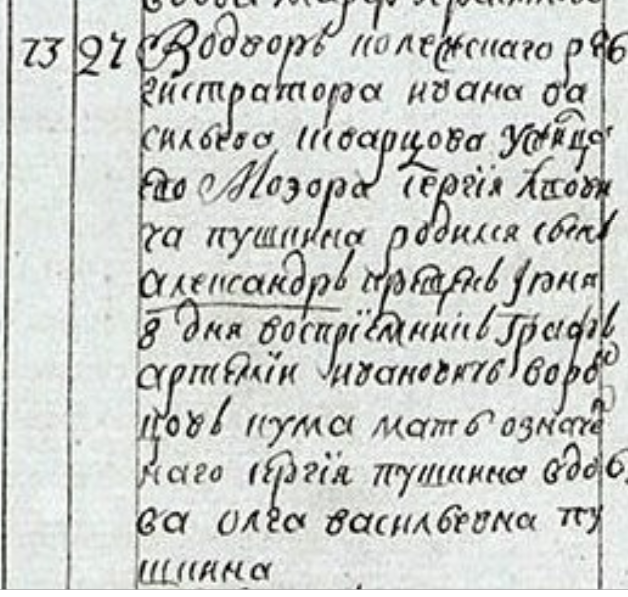 73 27 Водворѣ колежскаго ре
гистратора ивана ва
сильева шварцова у жилца
ево Моэора Сергiя Лвови
ча пушкина родился сынъ
александръ крещенъ Iюня
8 дня воспрiемникъ Графъ
артемiи ивановичь ворон
цовъ кума мать означе
наго Сергiя пушкина вдо
ва олга васильевна пу
шкина